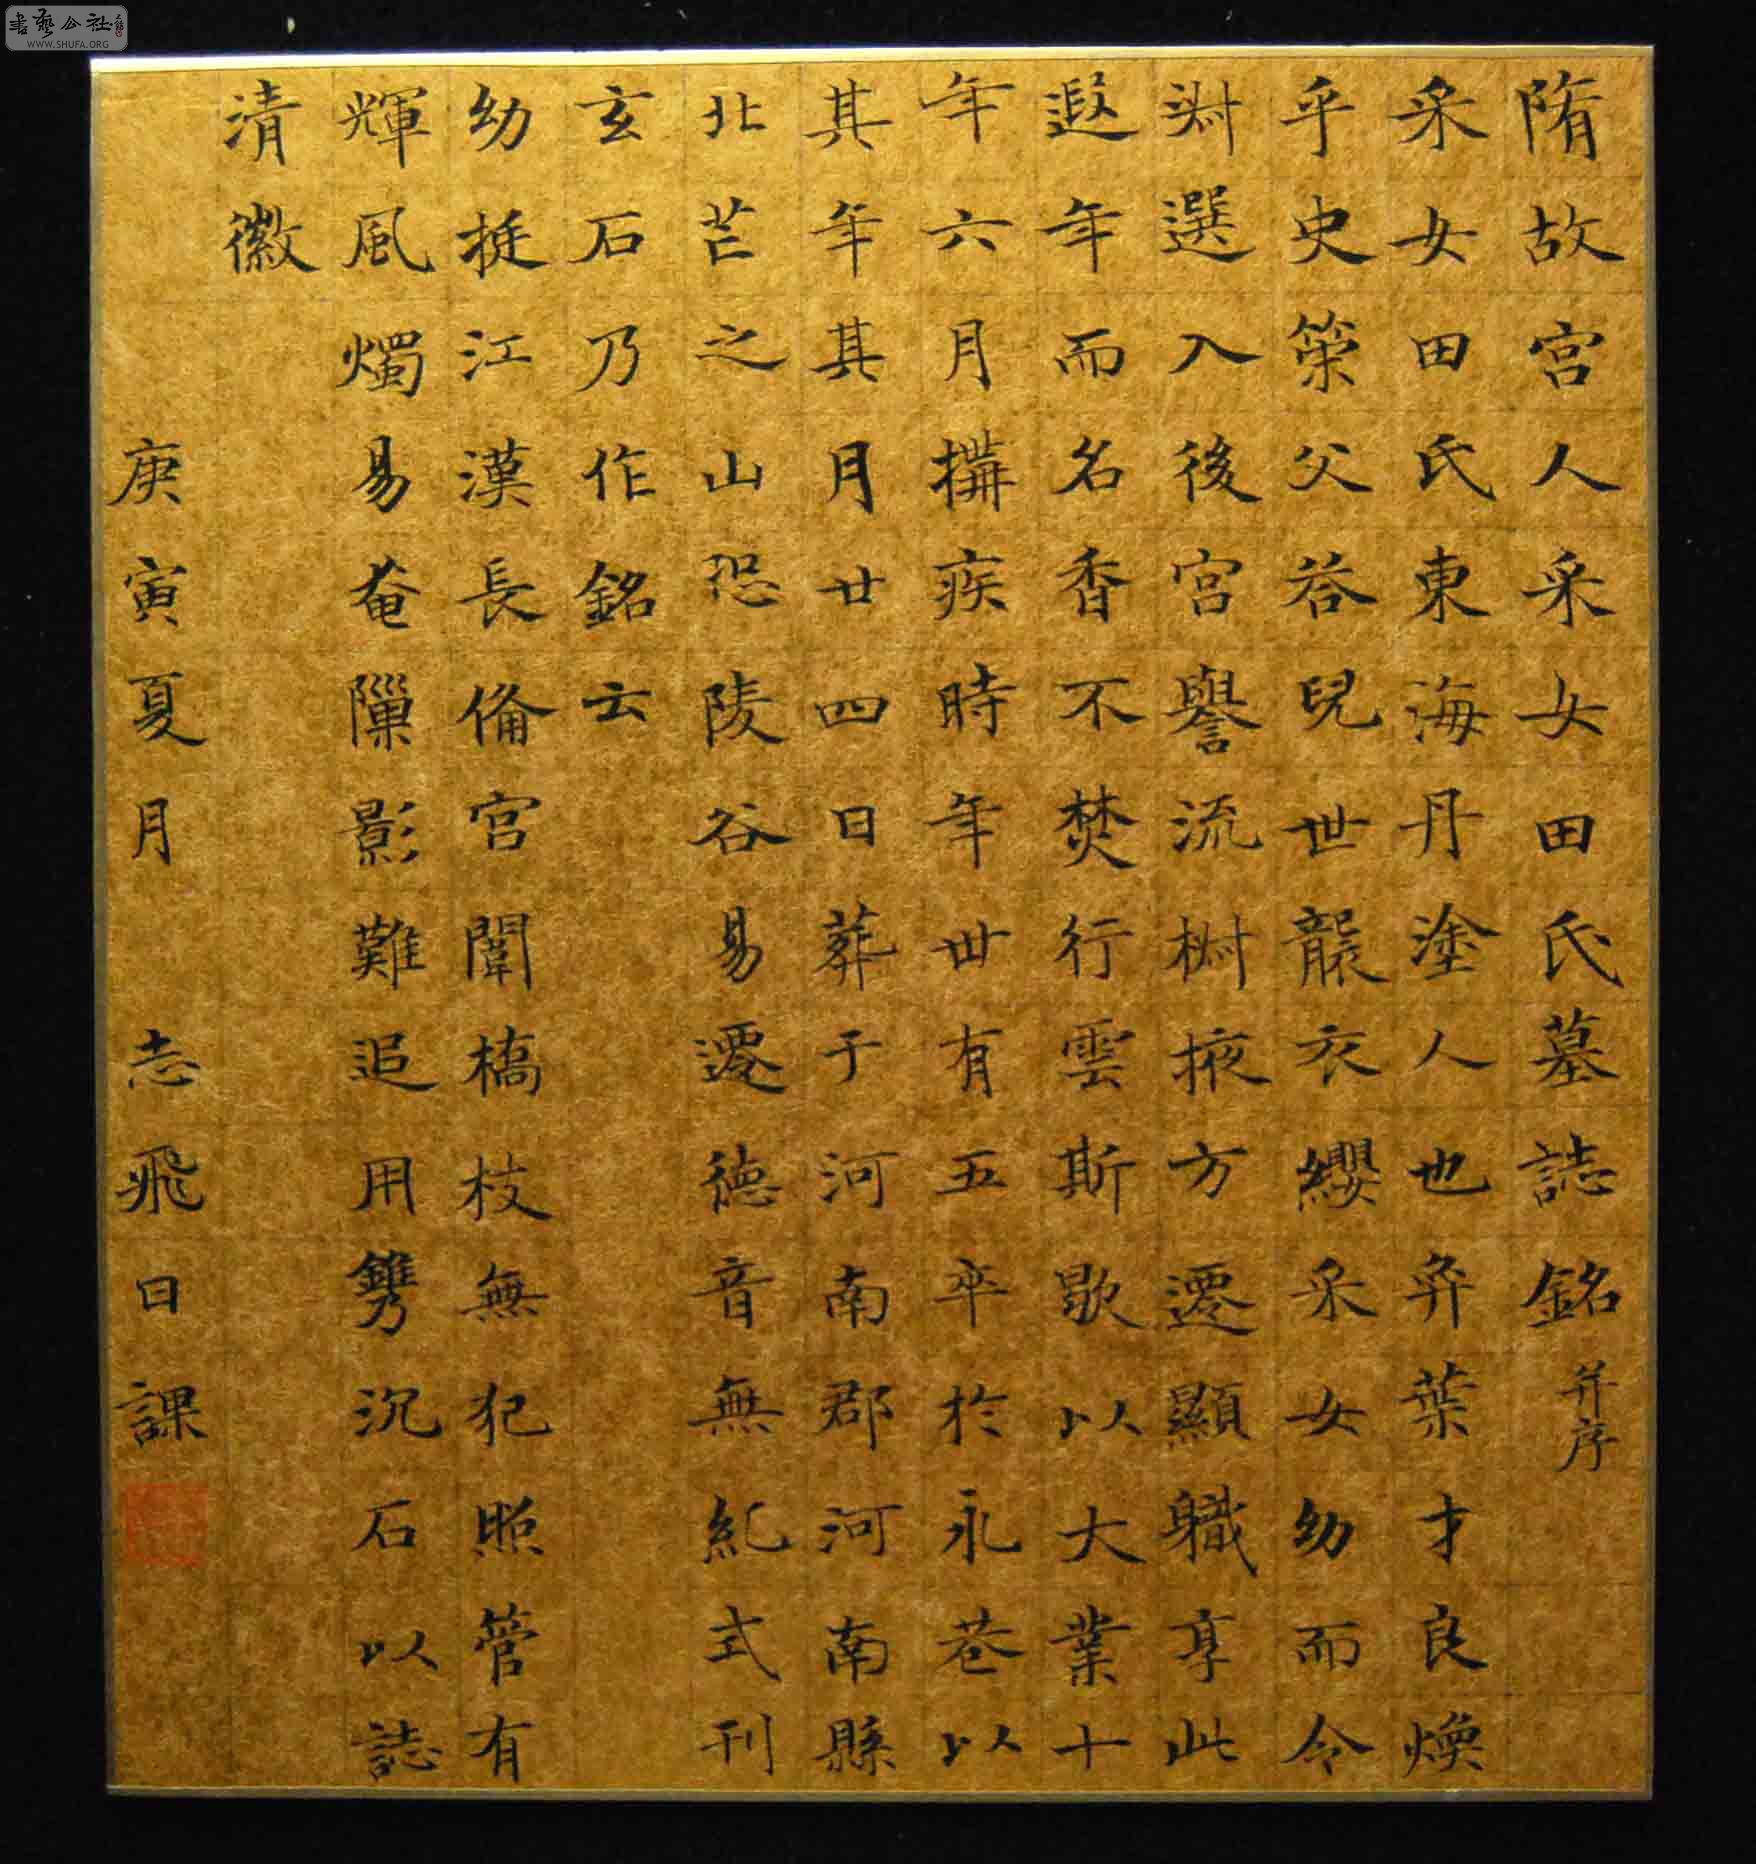 隋故宫人采女田氏墓誌銘并序
采女田氏東海丹塗人也弈葉才良煥
乎史策父谷兒世襲衣纓采女幼而令
淑選入後宫譽流椒掖方遷顯職享此
遐年而名香不焚行雲斯歇以大業十
年六月搆疾時年丗有五卒於永巷以
其年其月廿四日葬于河南郡河南縣
北芒之山恐陵谷易遷德音無紀式刊
玄石乃作銘云
幼挺江漢長俻宫闈橋枝無犯照管有
輝風燭易奄隟影難追用鐫沉石以誌
清徽
庚寅夏月 志飛日課
書藝公社
WWW.SHUFA.ORG